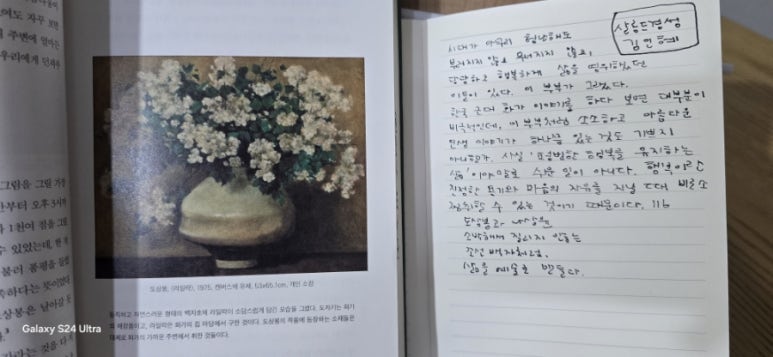 그림을 그릴 가장
오후 3시까
1천여 점을 그
수 있었는데, 한
불러 몸평을 들
족하다는 뜻이었다
도상봉은 날이 궂
라는 것을 다
도상봉, 〈라일락〉, 1975, 캔버스에 유채, 53x65.1cm, 개인 소장
둥글하고 자연스러운 형태의 백자호에 라일락이 소담스럽게 담긴 모습을 그렸다. 도자기는 화가
의 애장품이고, 라일락은 화가의 집 마당에서 구한 것이다. 도상봉의 작품에 등장하는 소재들은
대체로 화가의 가까운 주변에서 취한 것들이다.
살롱드경성
김인혜
시대가 아무리 험난해도
부러지지 않고 무너지지 않고,
단란하고 행복하게 삶을 영위했던
이들이 있다. 이 부부가 그랬다.
한국 근대 화가 이야기를 하다 보면 대부분이
비극적인데, 이 부부처럼 소소하고 아름다운
인생 이야기가 하나쯤 있는 것도 기쁘지
아니한가. 사실 '평범한 행복'을 유지하는
삶이야말로 쉬운 일이 아니다. 행복이란
진정한 용기와 마음의 자유를 지닐 때 비로소
향유할 수 있는 것이기 때문이다. 116
도상봉과 나상윤
소박해서 질리지 않는
조선 백자처럼,
삶을 예술로 만들다.
Galaxy S24 Ultra